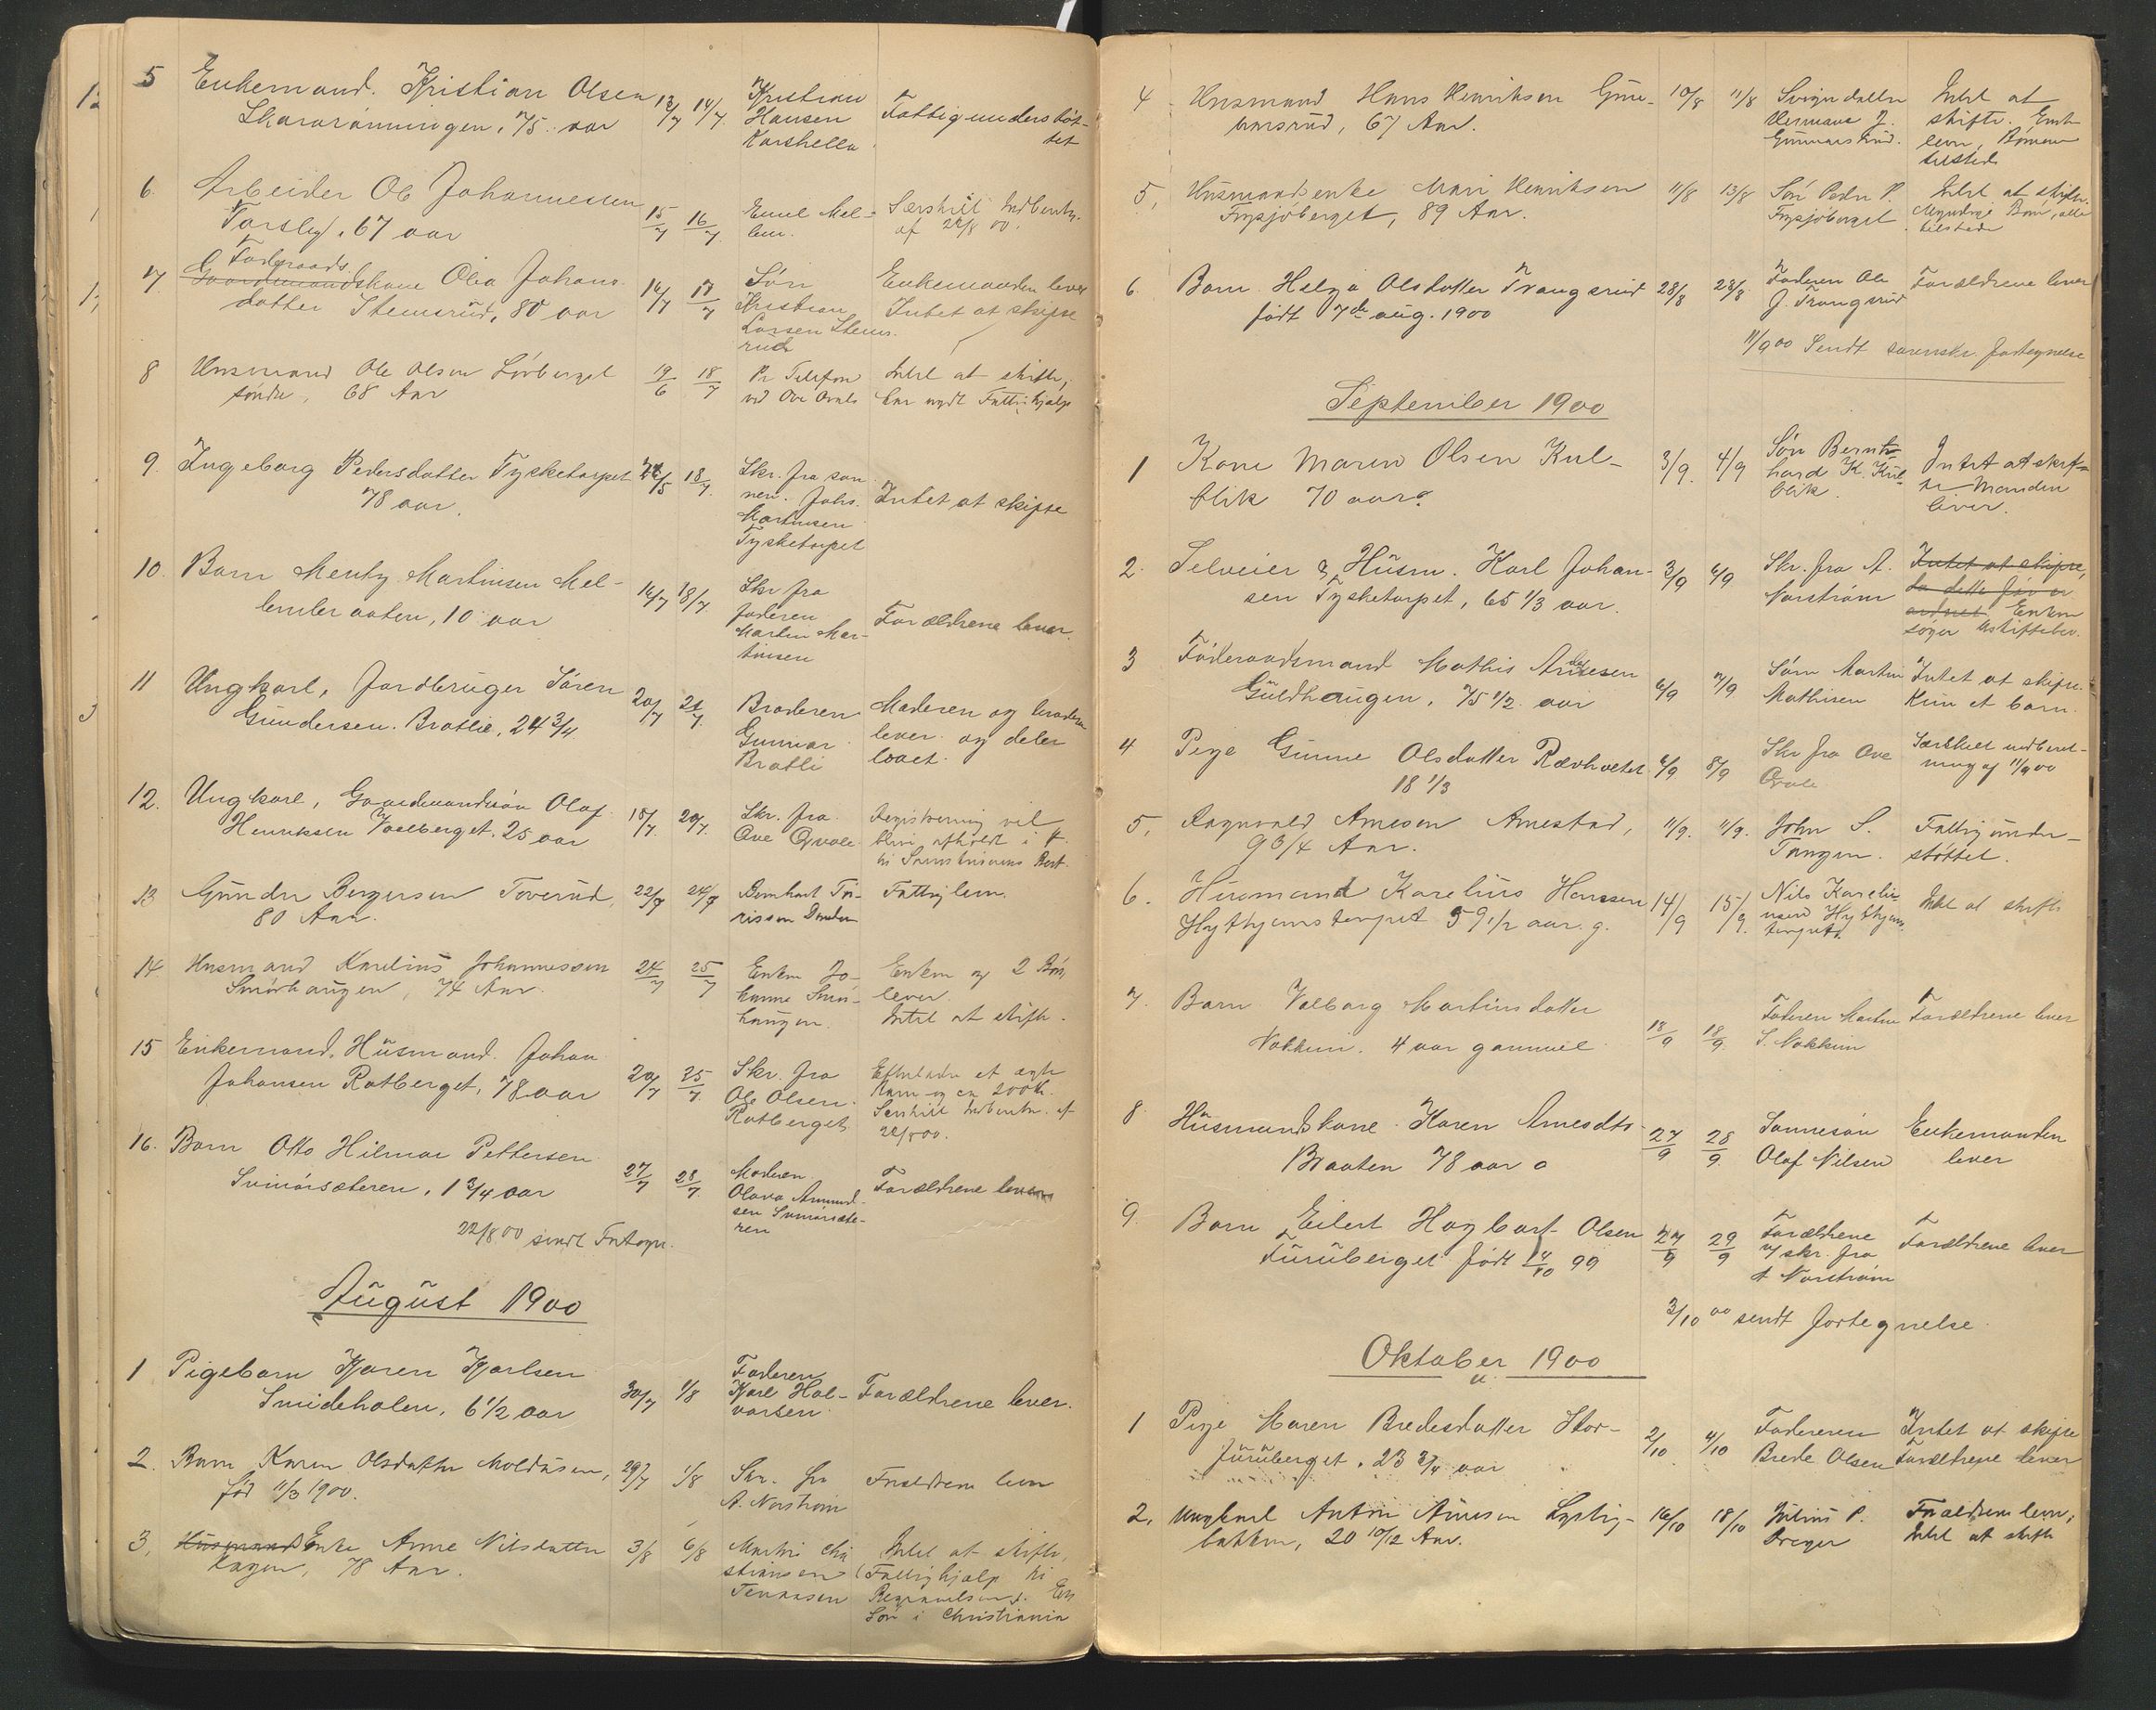 5 Enkemand. Kristian Olsen 13/7 14/7 Kristian Hansen Karshella Fattigunderstøt-
Skararønningen, 75 aar tet
6. Arbeider Ole Johannessen 15/7 16/7 Emil Mel- Særskilt Indberetn.
Torsley, 67 aar lem. af 22/8 00.
7 Føderaads
Gaardmandskone Olea Johans- 14/7 17/7 Søn Enkemanden lever
datter Stemsrud, 80 aar Kristian Intet at skifte
Larsen Stems-
rud
8 Husmand Ole Olsen Løvberget 19/6 18/7 Pr Telefon Intet at skifte,
søndre, 68 Aar ved Ove Qvale har nydt Fattighjælp
9. Ingeborg Pedersdatter Tysketorpet /5 18/7 Skr. fra søn-
78 aar. nen Johs. Intet at skifte
Martinsen
Tysketorpet
10. Barn Menty Martinsen Mel- 16/7 18/7 Skr fra
lembraaten, 10 aar faderen Forældrene lever.
Martin Mar-
tinsen
11 Ungkarl, Jordbruger Søren 20/7 21/7 Broderen Moderen og brødrene
Gundersen Bratlie, 24 3/4 Gunnar lever og deler
Bratli boet.
12. Ungkarl, Gaardmandssøn Olaf 18/7 20/7. Skr. fra Registrering vil
Henriksen Vaalberget. 25 aar Ove Qvale blive afholdt i
13 Gunder Bergersen Toverud, 22/7 24/7 Bernhart To- Fattiglem.
80 Aar. risson
14. Husmand Karelius Johannessen 24/7 25/7 Enken Jo- Enken og 2 Børn
Smørhaugen, 74 Aar. hanne Smør- lever.
haugen. Intet at skifte.
15 Enkemand, Husmand Johan 20/7 25/7 Skr. fra Efterlader et ægte
Johansen Ratberget, 78 aar Ole Olsen Barn og ca 200 Kr.
Ratberget Særskilt Indberetn. af
22/8 00.
16. Barn Otto Hilmar Pettersen 27/7 28/7 Moderen Forældrene lever
Svinørsæteren, 1 3/4 aar Olava Amund-
sen Svinørsæte-
ren
22/8 00 sendt Fortegn.
August 1900
1 Pigebarn Karen Karlsen 30/7 1/8 Faderen
Smideholen, 6 1/2 aar Karl Hal- Forældrene lever.
vorsen
2. Barn Karen Olsdatter Moldusen, 29/7 1/8 Skr. fra Forældrene lever
fød 11/3 1900. A. Norstrøm
3. Husmands Enke Anne Nilsdatter 3/8 6/8 Martin Chri- Intet at skifte,
Hagen, 78 Aar. stiansen Fattighjælp til
Tennaasen Begravelsen. En
Søn i Christiania
4 Husmand Hans Henriksen Gun- 10/8 11/8 Svigerdatter Intet at
narsrud, 67 Aar. Hermana J. skifte. Enke
Gunnarsrud. lever, Børnene
tilstede
5, Husmandsenke Mari Henriksen 11/8 13/8 Søn Peder P. Intet at skifte.
Frysjøberget, 89 Aar. Frysjøberget Myndige Børn, alle
tilstede
6. Barn Helga Olsdatter Trangsrud 28/8 28/8 Faderen Ole Forældrene lever
født 7de aug. 1900 J. Trangsrud
11/9 00 Sendt sorenskr. fortegnelse
September 1900
1 Kone Maren Olsen Kul- 3/9. 4/9 Søn Bern- Intet at skif-
blik 70 aar g. hard K. Kul- te Manden
blik. lever.
2. Selveier & Husm. Karl Johan- 3/9 6/9 Skr. fra A. Intet at skifte,
sen Tysketorpet, 65 1/3 aar. Norstrøm da dette før er
ordnet Enken
søger Uskiftebev.
3 Føderaadsmand Mathis Andersen 6/9 7/9 Søn Martin Intet at skifte.
Guldhaugen, 75 1/2 aar Mathisen Kun et barn.
4 Pige Gunne Olsdatter Rævholtet 6/9 8/9 Skr fra Ove Særskilt indberet-
18 1/3 Qvale. ning af 11/9 00
5, Ragnvald Arnesen Arnestad, 11/9. 11/9. John S. Fattigunder-
93/4 Aar. Tangen. støttet.
6. Husmand Karelius Hansen 14/9 15/9. Nils Kareliu- Intet at skifte
Hythjernstorpet 59 1/2 aar. g. ussen Hythjerns-
torpet.
7. Barn Valborg Martinsdatter 18/9 18/9. Faderen Martin Forældrene lever
Nokkun. 4 aar gammel S. Nokkun
8. Husmandskone Karen Arnesdtr. 27/9 28/9. Sønnesøn Enkemanden
Braaten 78 aar Olaf Nilsen lever
9. Barn Eilert Hagbart Olsen 27/9 29/9 Forældrene Forældrene lever
Furuberget født 14/10 99 v/ skr. fra
A Norstrøm
3/10 00 sendt fortegnelse
Oktober 1900
1 Pige Maren Bredesdatter Stor- 2/10 4/10 Faderen Intet at skifte
furuberget, 23 3/4 aar Brede Olsen Forældrene lever
2. Ungkarl Anton Arnesen Lystig- 16/10 18/10 Julius P. Forældrene lever,
bakken, 20 10/12 Aar. Dreyer Intet at skifte